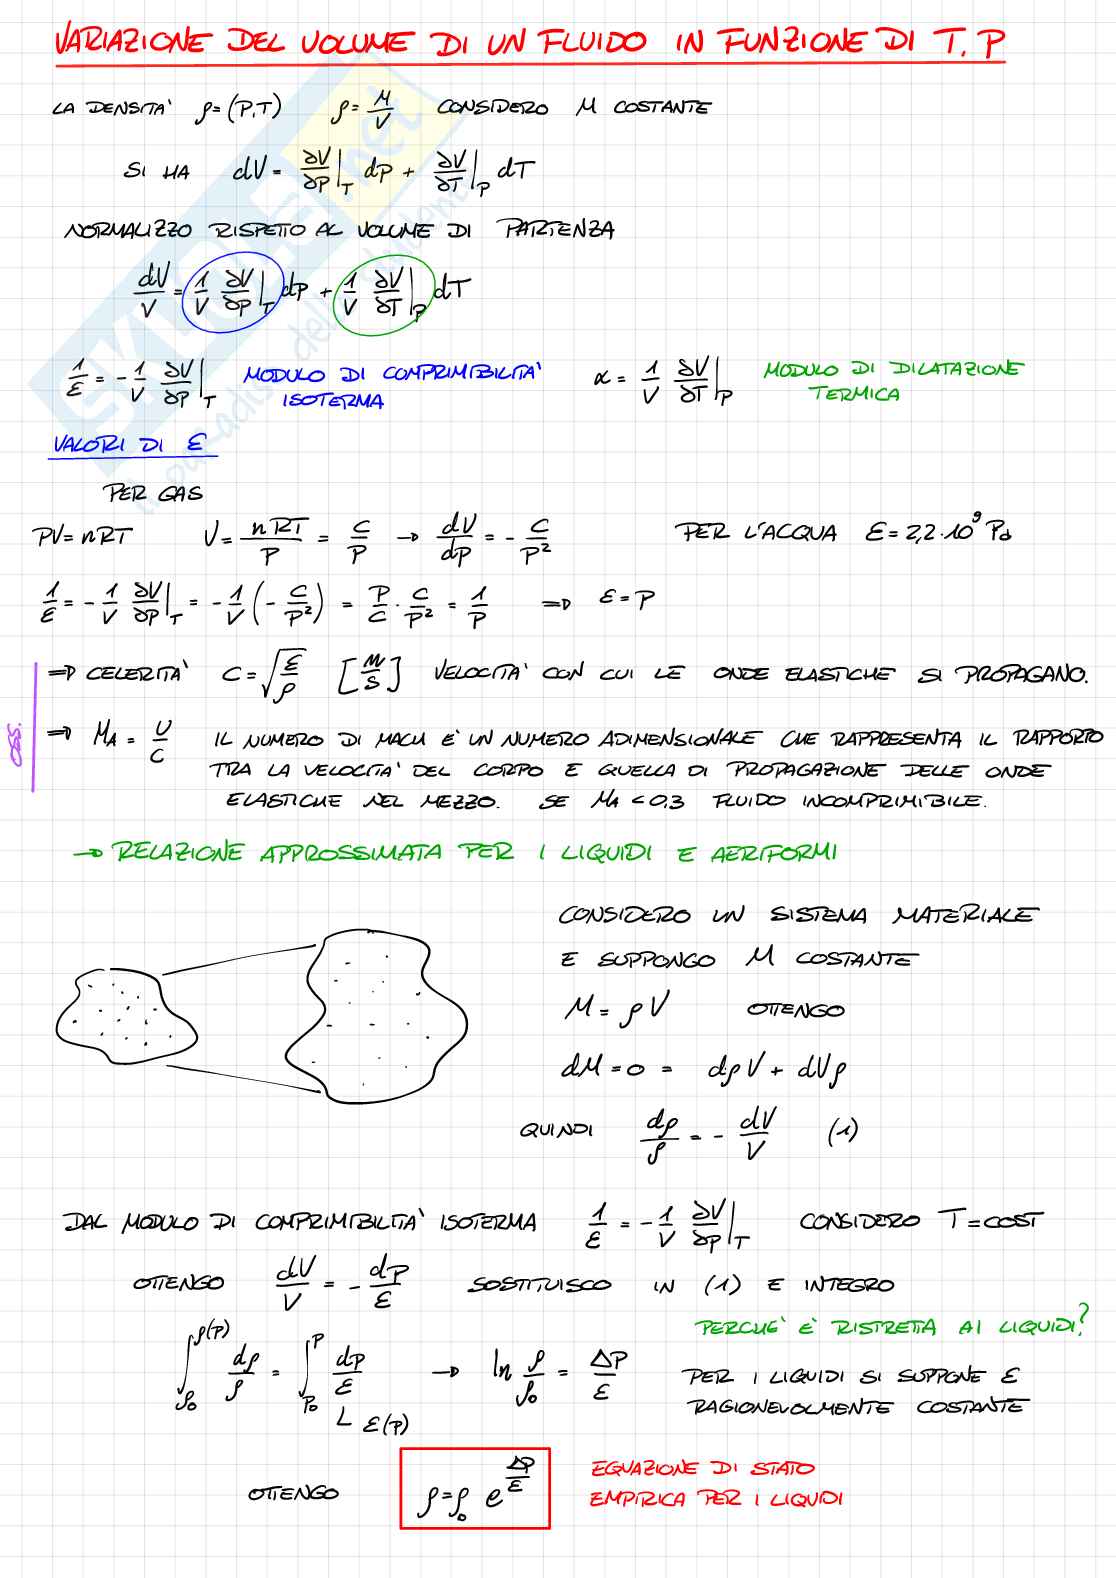 VARIAZIONE DEL VOLUME DI UN FLUIDO IN FUNZIONE DI T, P
LA DENSITA' ρ=(P,T) ρ = M/V CONSIDERO M COSTANTE
SI HA dV = ∂V/∂P|_T dp + ∂V/∂T|_P dT
NORMALIZZO RISPETTO AL VOLUME DI PARTENZA
dV/V = 1/V ∂V/∂P|_T dp + 1/V ∂V/∂T|_P dT
1/ε = -1/V ∂V/∂P|_T MODULO DI COMPRIMIBILITA' ISOTERMA α = 1/V ∂V/∂T|_P MODULO DI DILATAZIONE TERMICA
VALORI DI ε
PER GAS
PV = nRT V = nRT/P = C/P → dV/dp = -C/P² PER L'ACQUA ε = 2,2·10⁹ Pa
1/ε = -1/V ∂V/∂P|_T = -1/V (-C/P²) = P/C · C/P² = 1/P ⇒ ε = P
OSS.
⇒ CELERITA' C = √(ε/ρ) [M/S] VELOCITA' CON CUI LE ONDE ELASTICHE SI PROPAGANO.
⇒ M_A = U/C IL NUMERO DI MACH E' UN NUMERO ADIMENSIONALE CHE RAPPRESENTA IL RAPPORTO
TRA LA VELOCITA' DEL CORPO E QUELLA DI PROPAGAZIONE DELLE ONDE
ELASTICHE NEL MEZZO. SE M_A < 0,3 FLUIDO INCOMPRIMIBILE.
→ RELAZIONE APPROSSIMATA PER I LIQUIDI E AERIFORMI
CONSIDERO UN SISTEMA MATERIALE
E SUPPONGO M COSTANTE
M = ρV OTTENGO
dM = 0 = dρV + dVρ
QUINDI dρ/ρ = -dV/V (1)
DAL MODULO DI COMPRIMIBILITA' ISOTERMA 1/ε = -1/V ∂V/∂P|_T CONSIDERO T = COST
OTTENGO dV/V = -dp/ε SOSTITUISCO IN (1) E INTEGRO
∫_ρ₀^ρ(P) dρ/ρ = ∫_P₀^P dp/ε → ln ρ/ρ₀ = ΔP/ε
ε(P)
PERCHE' E' RISTRETTA AI LIQUIDI?
PER I LIQUIDI SI SUPPONE ε
RAGIONEVOLMENTE COSTANTE
OTTENGO ρ = ρ₀ e^(ΔP/ε)
EQUAZIONE DI STATO
EMPIRICA PER I LIQUIDI